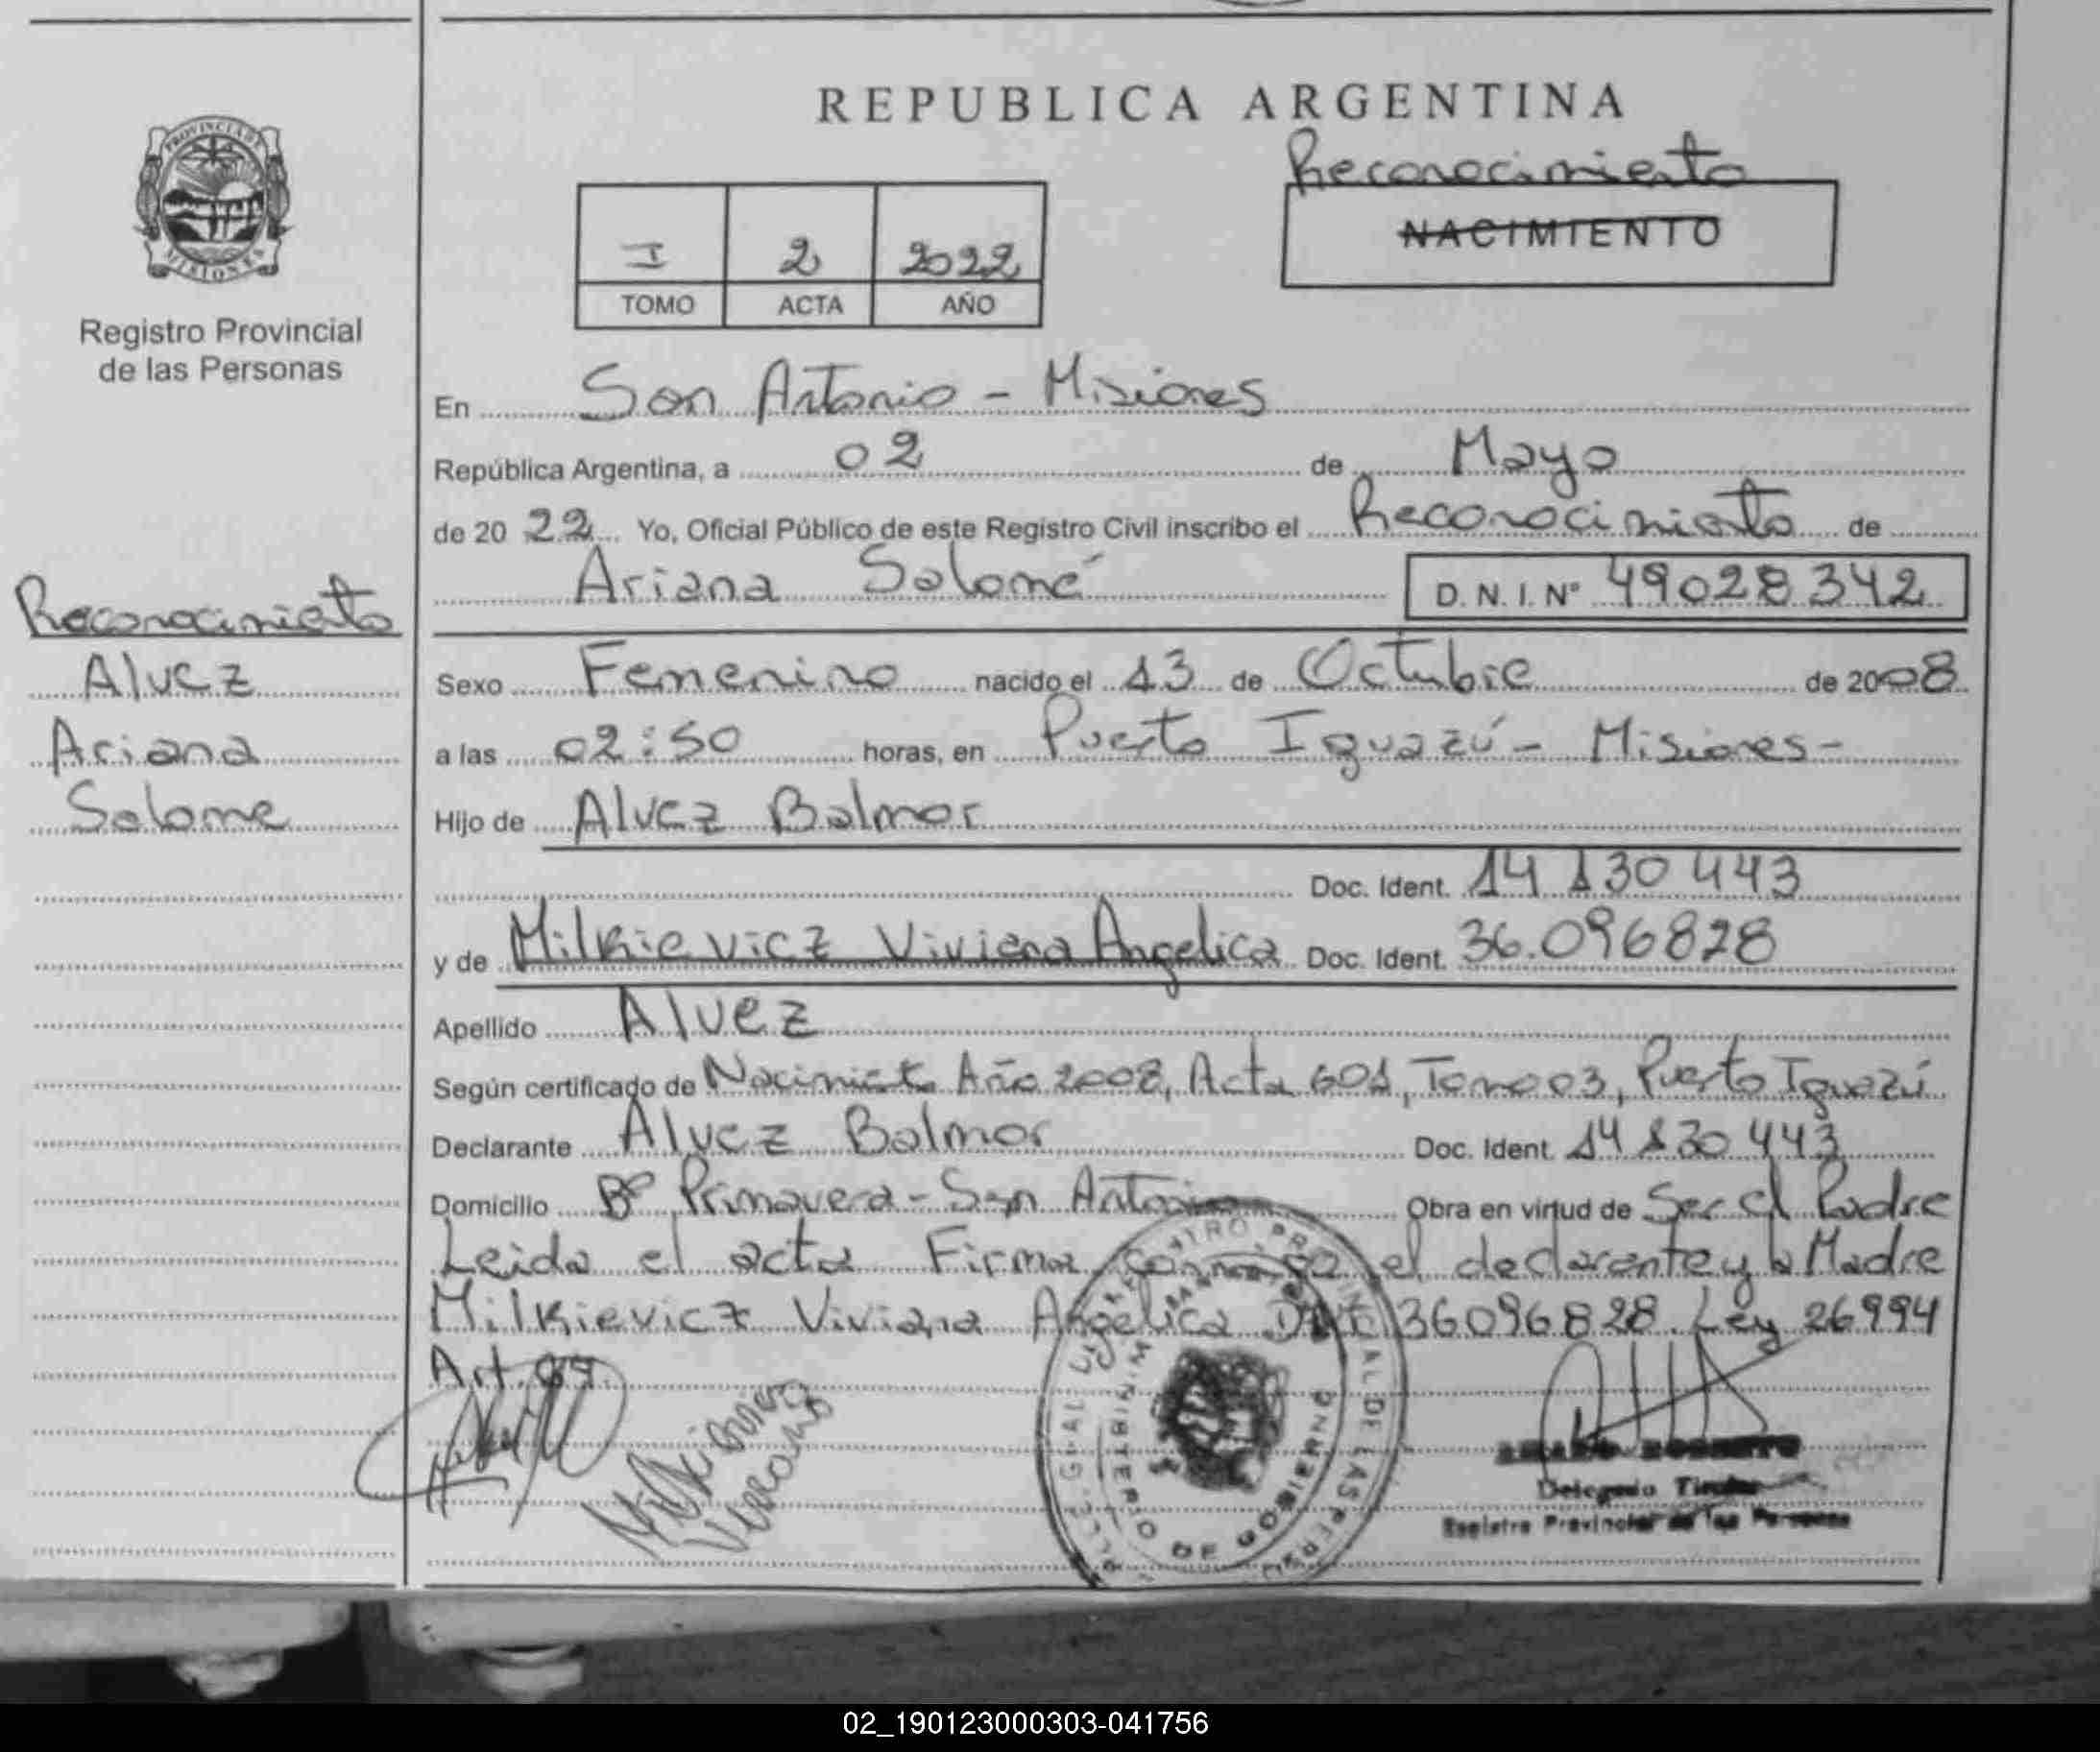 REPUBLICA ARGENTINA
PROVINCIA DE
MISIONES
Registro Provincial
de las Personas
Reconocimiento
NACIMIENTO
I 2 2022
TOMO ACTA AÑO
En San Antonio - Misiones
República Argentina, a 02 de Mayo
de 20 22 Yo, Oficial Público de este Registro Civil inscribo el Reconocimiento de
Ariana Salomé D.N.I. Nº 49028342
Reconocimiento
Alvez
Ariana
Salome
Sexo Femenino nacido el 13 de Octubre de 2008
a las 02:50 horas, en Puerto Iguazú - Misiones -
Hijo de Alvez Balmor
Doc. Ident. 14 130 443
y de Milkievicz Viviana Angelica Doc. Ident. 36.096828
Apellido Alvez
Según certificado de Nacimiento Año 2008, Acta 601, Tomo 03, Puerto Iguazú
Declarante Alvez Balmor Doc. Ident. 14 130 443
Domicilio Bº Primavera - San Antonio Obra en virtud de Ser el Padre
Leida el acta Firma conmigo el declarante y la Madre
Milkievicz Viviana Angelica DNI 36096828. Ley 26994
Art.
Delegado Titular
Registro Provincial de las Personas
02_190123000303-041756